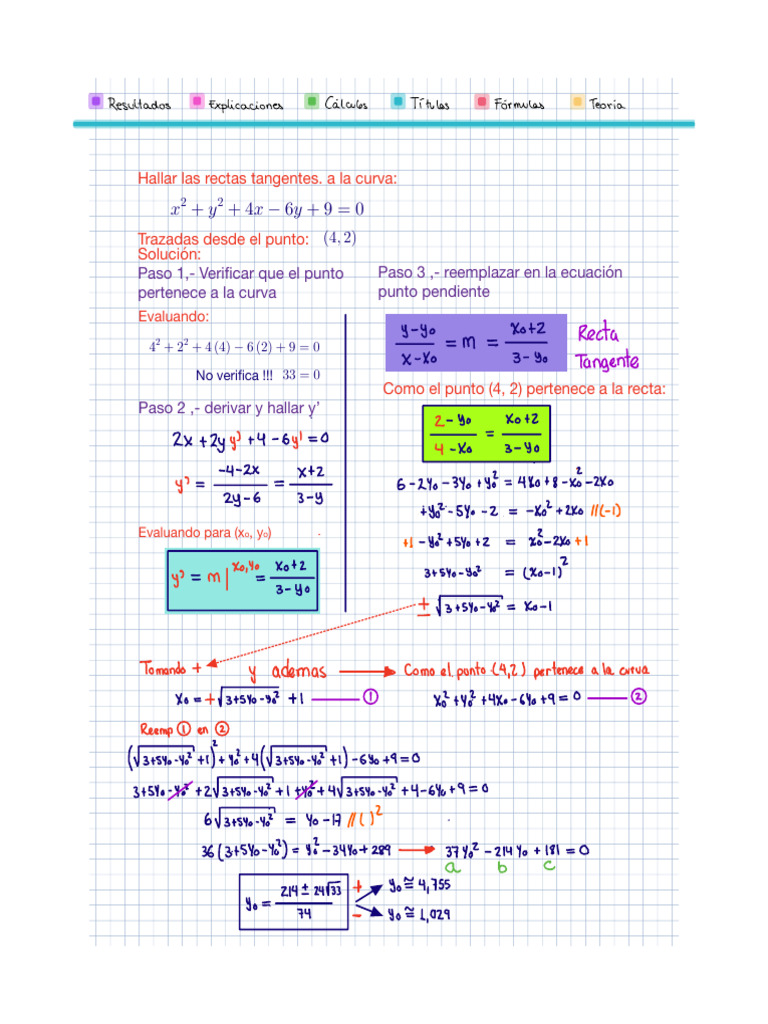 Resultados Explicaciones Cálculos Títulos Fórmulas Teoría
Hallar las rectas tangentes. a la curva:
x² + y² + 4x − 6y + 9 = 0
Trazadas desde el punto: (4, 2)
Solución:
Paso 1,- Verificar que el punto
pertenece a la curva
Evaluando:
4² + 2² + 4 (4) − 6 (2) + 9 = 0
No verifica !!! 33 = 0
Paso 2 ,- derivar y hallar y'
2x + 2y y' + 4 - 6y' = 0
y' = (-4-2x)/(2y-6) = (x+2)/(3-y)
Evaluando para (x₀, y₀)
y' = m | x₀,y₀ = (x₀+2)/(3-y₀)
Paso 3 ,- reemplazar en la ecuación
punto pendiente
(y-y₀)/(x-x₀) = m = (x₀+2)/(3-y₀) Recta
Tangente
Como el punto (4, 2) pertenece a la recta:
(2-y₀)/(4-x₀) = (x₀+2)/(3-y₀)
6-2y₀-3y₀+y₀² = 4x₀+8-x₀²-2x₀
+y₀²-5y₀-2 = -x₀²+2x₀ //(-1)
+1 -y₀²+5y₀+2 = x₀²-2x₀ +1
3+5y₀-y₀² = (x₀-1)²
± √(3+5y₀-y₀²) = x₀-1
Tomando + y ademas Como el punto (4,2) pertenece a la curva
x₀ = +√(3+5y₀-y₀²) +1 ① x₀²+y₀²+4x₀-6y₀+9=0 ②
Reemp ① en ②
(√(3+5y₀-y₀²)+1)² + y₀²+4(√(3+5y₀-y₀²)+1)-6y₀+9=0
3+5y₀-y₀²+2√(3+5y₀-y₀²)+1+y₀²+4√(3+5y₀-y₀²)+4-6y₀+9=0
6√(3+5y₀-y₀²) = y₀-17 //( )²
36(3+5y₀-y₀²) = y₀²-34y₀+289 37y₀²-214y₀+181=0
a b c
y₀ = (214 ± 24√33)/74 + y₀≅4,755
- y₀≅1,029